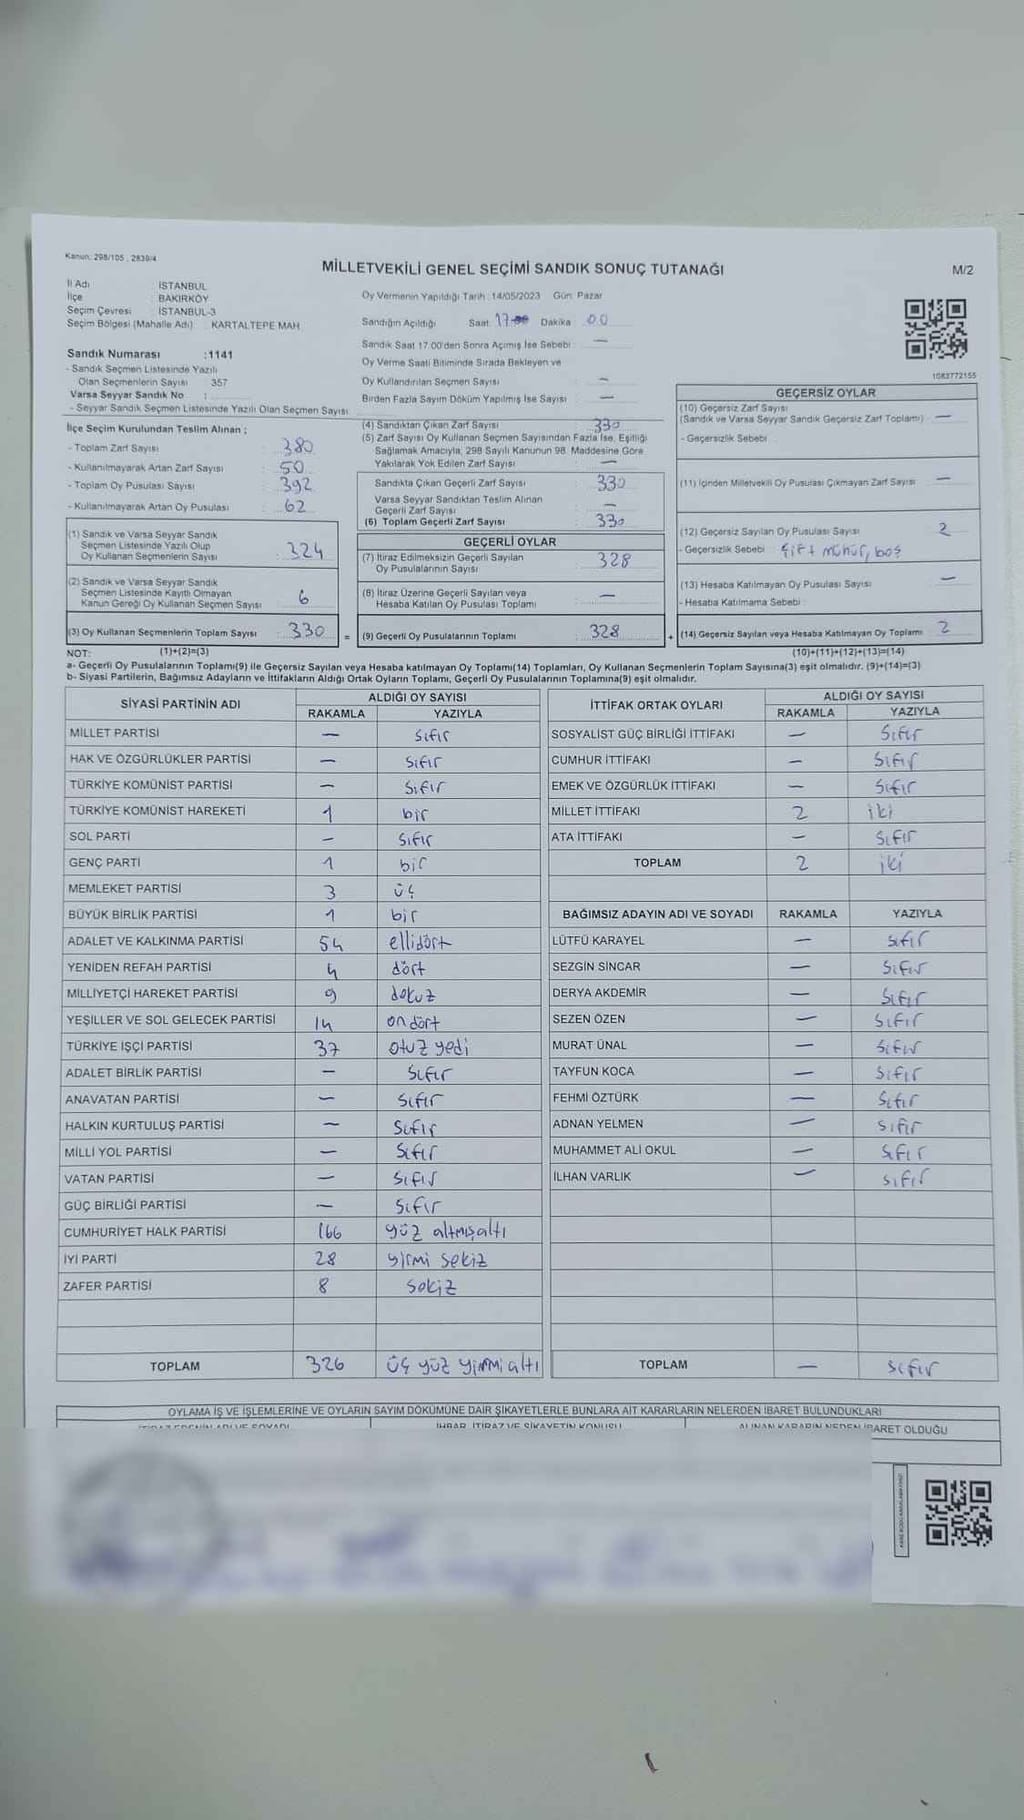 Kanun: 298/105 , 2839/4
MİLLETVEKİLİ GENEL SEÇİMİ SANDIK SONUÇ TUTANAĞI
M/2
İl Adı : İSTANBUL
İlçe : BAKIRKÖY
Seçim Çevresi : İSTANBUL-3
Seçim Bölgesi (Mahalle Adı) : KARTALTEPE MAH.
Sandık Numarası :1141
- Sandık Seçmen Listesinde Yazılı
Olan Seçmenlerin Sayısı : 357
Varsa Seyyar Sandık No :
- Seyyar Sandık Seçmen Listesinde Yazılı Olan Seçmen Sayısı :
Oy Vermenin Yapıldığı Tarih : 14/05/2023 Gün: Pazar
Sandığın Açıldığı Saat: 17 Dakika 00
Sandık Saat 17:00'den Sonra Açımış İse Sebebi : —
Oy Verme Saati Bitiminde Sırada Bekleyen ve
Oy Kullandırılan Seçmen Sayısı : —
Birden Fazla Sayım Döküm Yapılmış İse Sayısı : —
1083772155
İlçe Seçim Kurulundan Teslim Alınan ;
- Toplam Zarf Sayısı : 380
- Kullanılmayarak Artan Zarf Sayısı : 50
- Toplam Oy Pusulası Sayısı : 392
- Kullanılmayarak Artan Oy Pusulası : 62
(1) Sandık ve Varsa Seyyar Sandık
Seçmen Listesinde Yazılı Olup
Oy Kullanan Seçmenlerin Sayısı : 324
(2) Sandık ve Varsa Seyyar Sandık
Seçmen Listesinde Kayıtlı Olmayan
Kanun Gereği Oy Kullanan Seçmen Sayısı : 6
(3) Oy Kullanan Seçmenlerin Toplam Sayısı : 330
(4) Sandıktan Çıkan Zarf Sayısı : 330
(5) Zarf Sayısı Oy Kullanan Seçmen Sayısından Fazla İse, Eşitliği
Sağlamak Amacıyla, 298 Sayılı Kanunun 98. Maddesine Göre
Yakılarak Yok Edilen Zarf Sayısı : —
Sandıkta Çıkan Geçerli Zarf Sayısı : 330
Varsa Seyyar Sandıktan Teslim Alınan
Geçerli Zarf Sayısı : —
(6) Toplam Geçerli Zarf Sayısı : 330
GEÇERLİ OYLAR
(7) İtiraz Edilmeksizin Geçerli Sayılan
Oy Pusulalarının Sayısı : 328
(8) İtiraz Üzerine Geçerli Sayılan veya
Hesaba Katılan Oy Pusulası Toplamı : —
= (9) Geçerli Oy Pusulalarının Toplamı : 328
GEÇERSİZ OYLAR
(10) Geçersiz Zarf Sayısı
(Sandık ve Varsa Seyyar Sandık Geçersiz Zarf Toplamı) : —
- Geçersizlik Sebebi :
(11) İçinden Milletvekili Oy Pusulası Çıkmayan Zarf Sayısı : —
(12) Geçersiz Sayılan Oy Pusulası Sayısı : 2
- Geçersizlik Sebebi : çift mühür, boş
(13) Hesaba Katılmayan Oy Pusulası Sayısı : —
- Hesaba Katılmama Sebebi :
+ (14) Geçersiz Sayılan veya Hesaba Katılmayan Oy Toplamı : 2
NOT: (1)+(2)=(3) (10)+(11)+(12)+(13)=(14)
a- Geçerli Oy Pusulalarının Toplamı(9) ile Geçersiz Sayılan veya Hesaba katılmayan Oy Toplamı(14) Toplamları, Oy Kullanan Seçmenlerin Toplam Sayısına(3) eşit olmalıdır. (9)+(14)=(3)
b- Siyasi Partilerin, Bağımsız Adayların ve İttifakların Aldığı Ortak Oyların Toplamı, Geçerli Oy Pusulalarının Toplamına(9) eşit olmalıdır.
SİYASİ PARTİNİN ADI ALDIĞI OY SAYISI
RAKAMLA YAZIYLA
MİLLET PARTİSİ — sıfır
HAK VE ÖZGÜRLÜKLER PARTİSİ — sıfır
TÜRKİYE KOMÜNİST PARTİSİ — sıfır
TÜRKİYE KOMÜNİST HAREKETİ 1 bir
SOL PARTİ — sıfır
GENÇ PARTİ 1 bir
MEMLEKET PARTİSİ 3 üç
BÜYÜK BİRLİK PARTİSİ 1 bir
ADALET VE KALKINMA PARTİSİ 54 ellidört
YENİDEN REFAH PARTİSİ 4 dört
MİLLİYETÇİ HAREKET PARTİSİ 9 dokuz
YEŞİLLER VE SOL GELECEK PARTİSİ 14 on dört
TÜRKİYE İŞÇİ PARTİSİ 37 otuz yedi
ADALET BİRLİK PARTİSİ — sıfır
ANAVATAN PARTİSİ — sıfır
HALKIN KURTULUŞ PARTİSİ — sıfır
MİLLİ YOL PARTİSİ — sıfır
VATAN PARTİSİ — sıfır
GÜÇ BİRLİĞİ PARTİSİ — sıfır
CUMHURİYET HALK PARTİSİ 166 yüz altmışaltı
İYİ PARTİ 28 yirmi sekiz
ZAFER PARTİSİ 8 sekiz
TOPLAM 326 üç yüz yirmi altı
İTTİFAK ORTAK OYLARI ALDIĞI OY SAYISI
RAKAMLA YAZIYLA
SOSYALİST GÜÇ BİRLİĞİ İTTİFAKI — sıfır
CUMHUR İTTİFAKI — sıfır
EMEK VE ÖZGÜRLÜK İTTİFAKI — sıfır
MİLLET İTTİFAKI 2 iki
ATA İTTİFAKI — sıfır
TOPLAM 2 iki
BAĞIMSIZ ADAYIN ADI VE SOYADI RAKAMLA YAZIYLA
LÜTFÜ KARAYEL — sıfır
SEZGİN SİNCAR — sıfır
DERYA AKDEMİR — sıfır
SEZEN ÖZEN — sıfır
MURAT ÜNAL — sıfır
TAYFUN KOCA — sıfır
FEHMİ ÖZTÜRK — sıfır
ADNAN YELMEN — sıfır
MUHAMMET ALİ OKUL — sıfır
İLHAN VARLIK — sıfır
TOPLAM — sıfır
OYLAMA İŞ VE İŞLEMLERİNE VE OYLARIN SAYIM DÖKÜMÜNE DAİR ŞİKAYETLERLE BUNLARA AİT KARARLARIN NELERDEN İBARET BULUNDUKLARI
İTİRAZ EDENİN ADI VE SOYADI İHBAR, İTİRAZ VE ŞİKAYETİN KONUSU ALINAN KARARIN NEDEN İBARET OLDUĞU